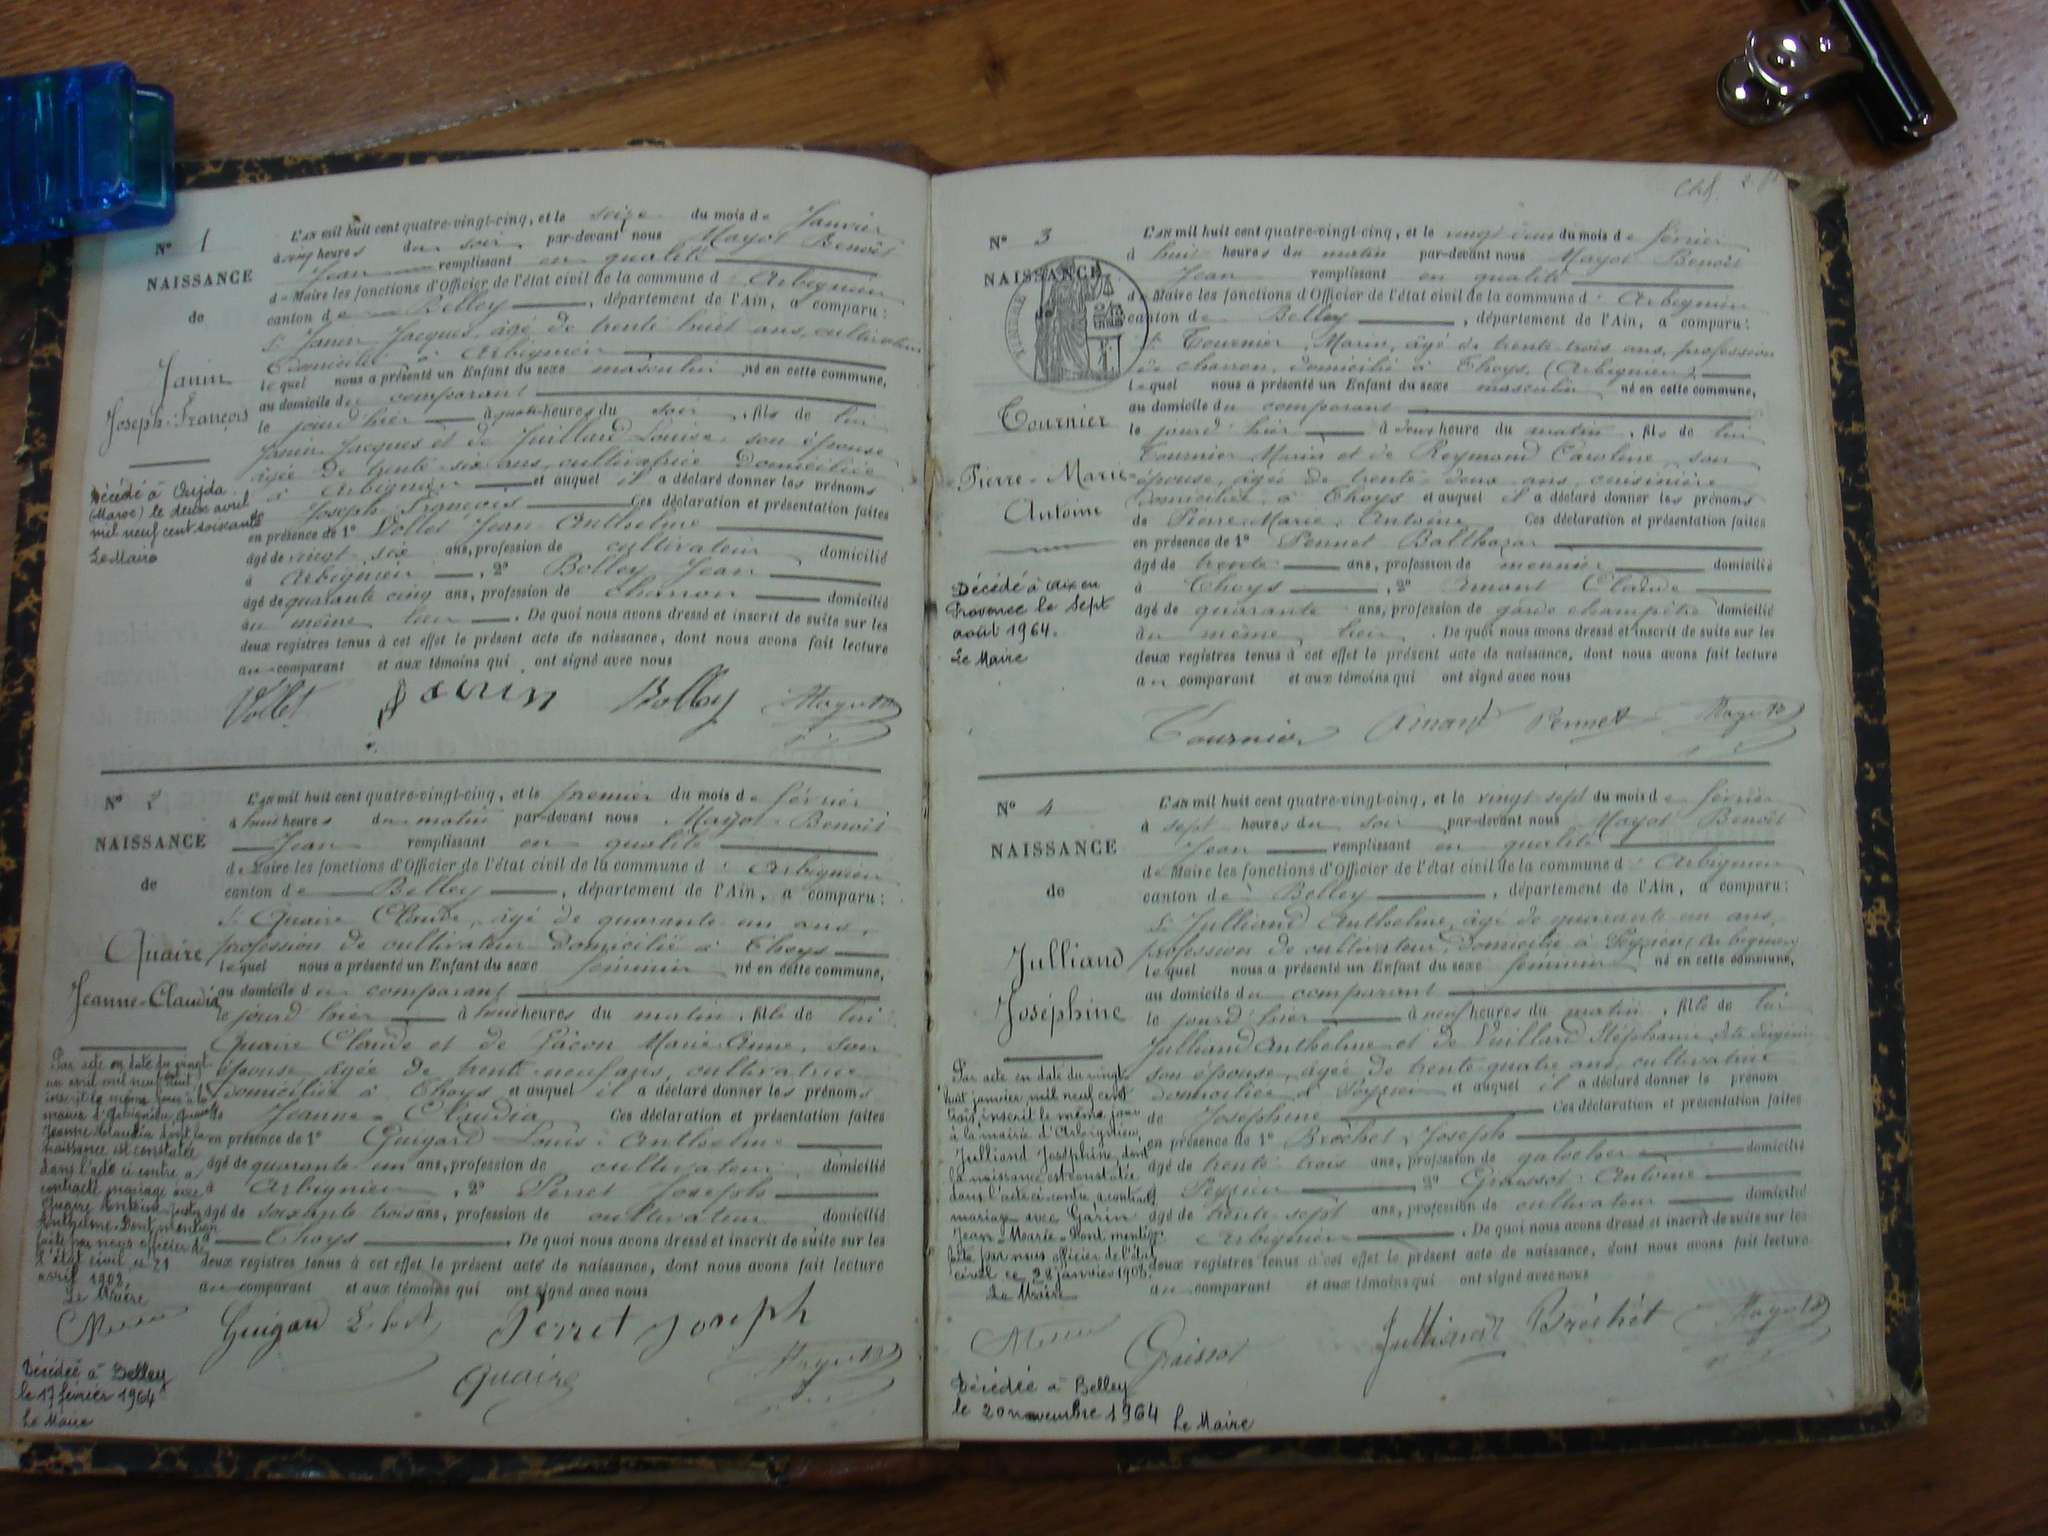 N° 1
NAISSANCE
de
Janin
Joseph-François
Décédé à Oujda
(Maroc) le deux avril
mil neuf cent soixante
Le Maire
L'an mil huit cent quatre-vingt-cinq, et le seize du mois de Janvier
à cinq heures du soir par-devant nous Mayot Benoît
Jean remplissant en qualité
de Maire les fonctions d'Officier de l'état civil de la commune d'Arbignieu
canton de Belley, département de l'Ain, a comparu:
Sr Janin Jacques, âgé de trente huit ans, cultivateur
domicilié à Arbignieu
lequel nous a présenté un Enfant du sexe masculin né en cette commune,
au domicile du comparant
le jourd'hier à quatre heures du soir, fils de lui
Janin Jacques et de Juilland Louise son épouse
âgée de trente-six ans, cultivatrice domiciliée
à Arbignieu et auquel il a déclaré donner les prénoms
de Joseph François Ces déclaration et présentation faites
en présence de 1° Vollet Jean Anthelme
âgé de vingt six ans, profession de cultivateur domicilié
à Arbignieu, 2° Bolley Jean
âgé de quarante cinq ans, profession de charron domicilié
au même lieu. De quoi nous avons dressé et inscrit de suite sur les
deux registres tenus à cet effet le présent acte de naissance, dont nous avons fait lecture
au comparant et aux témoins qui ont signé avec nous
Vollet Janin Bolley Mayot B
N° 2
NAISSANCE
de
Quaire
Jeanne-Claudia
Par acte en date du vingt
un avril mil neuf cent
inscrit le même jour à la
mairie d'Arbignieu, Quaire
Jeanne Claudia dont la
naissance est constatée
dans l'acte ci contre a
contracté mariage avec
Quaire Antoine Juste
Anthelme. Dont mention
faite par nous officier de
l'état civil, ce 21
avril 1902.
Le Maire
Décédée à Belley
le 17 février 1964
Le Maire
L'an mil huit cent quatre-vingt-cinq, et le premier du mois de février
à huit heures du matin par-devant nous Mayot Benoît
Jean remplissant en qualité
de Maire les fonctions d'Officier de l'état civil de la commune d'Arbignieu
canton de Belley, département de l'Ain, a comparu:
Sr Quaire Claude, âgé de quarante un ans,
profession de cultivateur domicilié à Thoys
lequel nous a présenté un Enfant du sexe féminin né en cette commune,
au domicile du comparant
le jourd'hier à huit heures du matin, fille de lui
Quaire Claude et de Gâcon Marie-Anne, son
épouse âgée de trente-neuf ans, cultivatrice
domiciliée à Thoys et auquel il a déclaré donner les prénoms
de Jeanne-Claudia Ces déclaration et présentation faites
en présence de 1° Guigard Louis-Anthelme
âgé de quarante un ans, profession de cultivateur domicilié
à Arbignieu, 2° Perret Joseph
âgé de soixante trois ans, profession de cultivateur domicilié
Thoys. De quoi nous avons dressé et inscrit de suite sur les
deux registres tenus à cet effet le présent acte de naissance, dont nous avons fait lecture
au comparant et aux témoins qui ont signé avec nous
Perret Joseph
Quaire Mayot B
N° 3
NAISSANCE
de
Tournier
Pierre-Marie-
Antoine
Décédé à Aix en
Provence le sept
août 1964.
Le Maire
L'an mil huit cent quatre-vingt-cinq, et le vingt deux du mois de février
à huit heures du matin par-devant nous Mayot Benoît
Jean remplissant en qualité
de Maire les fonctions d'Officier de l'état civil de la commune d'Arbignieu
canton de Belley, département de l'Ain, a comparu:
Sr Tournier Marin, âgé de trente-trois ans, profession
de charron, domicilié à Thoys, (Arbignieu),
lequel nous a présenté un Enfant du sexe masculin né en cette commune,
au domicile du comparant
le jourd'hier à deux heure du matin, fils de lui
Tournier Marin et de Reymond Caroline, son
épouse, âgée de trente-deux ans, cuisinière
domiciliée à Thoys et auquel il a déclaré donner les prénoms
de Pierre-Marie-Antoine Ces déclaration et présentation faites
en présence de 1° Pennet Balthazar
âgé de trente ans, profession de meunier domicilié
à Thoys, 2° Amant Claude
âgé de quarante ans, profession de garde champêtre domicilié
au même lieu. De quoi nous avons dressé et inscrit de suite sur les
deux registres tenus à cet effet le présent acte de naissance, dont nous avons fait lecture
au comparant et aux témoins qui ont signé avec nous
Tournier Amant Pennet Mayot B
N° 4
NAISSANCE
de
Julliand
Joséphine
Par acte en date du vingt
huit janvier mil neuf cent
trois, inscrit le même jour
à la mairie d'Arbignieu,
Julliand Joséphine, dont
la naissance est constatée
dans l'acte ci contre a contracté
mariage avec Garin
Jean-Marie. Dont mention
faite par nous officier de l'état
civil ce 28 janvier 1903.
Le Maire
Décédée à Belley
le 20 novembre 1964 Le Maire
L'an mil huit cent quatre-vingt-cinq, et le vingt sept du mois de février
à sept heures du soir par-devant nous Mayot Benoît
Jean remplissant en qualité
de Maire les fonctions d'Officier de l'état civil de la commune d'Arbignieu
canton de Belley, département de l'Ain, a comparu:
Sr Julliand Anthelme, âgé de quarante un ans,
profession de cultivateur domicilié à Peyzieu (Arbignieu)
lequel nous a présenté un Enfant du sexe féminin né en cette commune,
au domicile du comparant
le jourd'hier à neuf heures du matin, fille de lui
Julliand Anthelme et de Vuillard Stéphanie
son épouse, âgée de trente quatre ans, cultivatrice
domiciliée à Peyzieu a auquel il a déclaré donner le prénom
de Joséphine Ces déclaration et présentation faites
en présence de 1° Bréchet Joseph
âgé de trente trois ans, profession de galocher domicilié
à Peyzieu, 2° Graissot Antoine
âgé de trente sept ans, profession de cultivateur domicilié
Arbignieu. De quoi nous avons dressé et inscrit de suite sur les
deux registres tenus à cet effet le présent acte de naissance, dont nous avons fait lecture
au comparant et aux témoins qui ont signé avec nous
Graissot Julliand Bréchet Mayot B